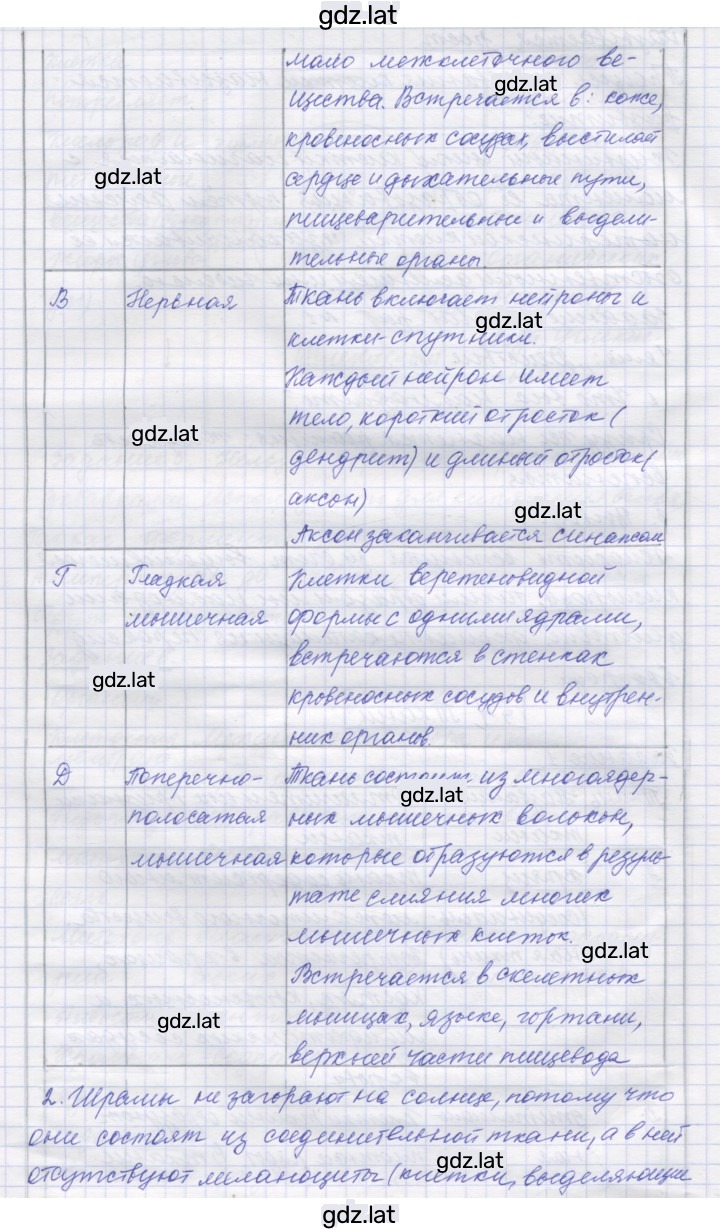 gdz.lat
мало межклеточного ве-
gdz.lat
щества. Встречается в: коже,
кровеносных сосудах, выстилает
gdz.lat
сердце и дыхательные пути,
пищеварительные и выдели-
тельные органы.
В Нервная Ткань включает нейроны и
gdz.lat
клетки-спутники.
Каждый нейрон имеет
тело, короткий отросток (
gdz.lat
дендрит) и длиный отросток (
аксон)
gdz.lat
Аксон заканчивается синапсом
Г Гладкая Клетки веретеновидной
мышечная формы с одними ядрами,
встречаются в стенках
gdz.lat
кровеносных сосудов и внутрен-
них органов.
Д Поперечно- Ткань состоит из многоядер-
gdz.lat
полосатая ных мышечных волокон,
мышечная которые образуются в резуль-
тате слияния многих
мышечных клеток.
gdz.lat
Встречается в скелетных
gdz.lat
мышцах, языке, гортани,
верхней части пищевода
2. Шрамы не загорают на солнце, потому что
они состоят из соединительной ткани, а в ней
gdz.lat
отсутствуют меланоциты (клетки, выделяющие
gdz.lat